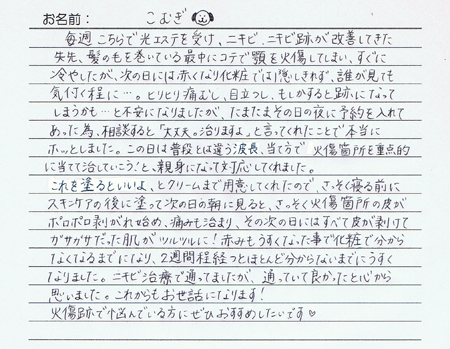 お名前： こむぎ
毎週こちらで光エステを受け、ニキビ、ニキビ跡が改善してきた
矢先、髪の毛を巻いている最中にコテで顎を火傷してしまい、すぐに
冷やしたが、次の日には赤くなり化粧では隠しきれず、誰が見ても
気付く程に…。ヒリヒリ痛むし、目立つし、もしかすると跡になって
しまうかも…と不安になりましたが、たまたまその日の夜に予約を入れて
あった為、相談すると「大丈夫。治りますよ」と言ってくれたことで本当に
ホッとしました。この日は普段とは違う波長、当て方で火傷箇所を重点的
に当てて治していこう！と、親身になって対応してくれました。
これを塗るといいよ、とクリームまで用意してくれたので、さっそく寝る前に
スキンケアの後に塗って次の日の朝に見ると、さっそく火傷箇所の皮が
ポロポロ剥がれ始め、痛みも治まり、その次の日にはすべて皮が剥けて
ガサガサだった肌がツルツルに！赤みもうすくなった事で化粧で分から
なくなるまでになり、2週間程経つとほとんど分からないまでにうすく
なりました。ニキビ治療で通ってましたが、通っていて良かったと心から
思いました。これからもお世話になります！
火傷跡で悩んでいる方にぜひおすすめしたいです♡